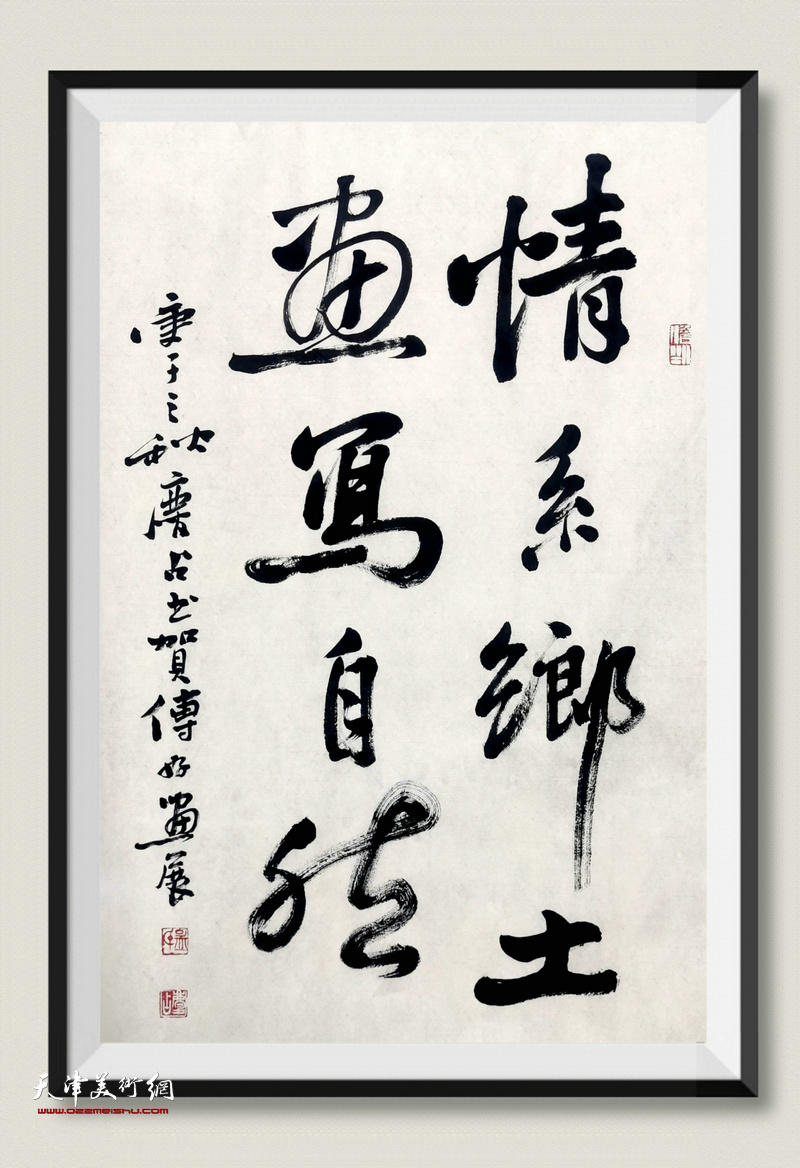 情系鄉土
畫寫自然
庚子之秋唐占書賀傅好畫展
天津美術網
www.022meishu.com